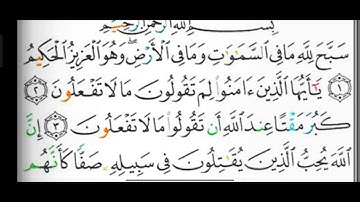 بِسْمِ ٱللَّهِ ٱلرَّحْمَٰنِ ٱلرَّحِيمِ
سَبَّحَ لِلَّهِ مَا فِى ٱلسَّمَٰوَٰتِ وَمَا فِى ٱلْأَرْضِ ۖ وَهُوَ ٱلْعَزِيزُ ٱلْحَكِيمُ
١ يَٰٓأَيُّهَا ٱلَّذِينَ ءَامَنُوا۟ لِمَ تَقُولُونَ مَا لَا تَفْعَلُونَ ٢
كَبُرَ مَقْتًا عِندَ ٱللَّهِ أَن تَقُولُوا۟ مَا لَا تَفْعَلُونَ ٣ إِنَّ
ٱللَّهَ يُحِبُّ ٱلَّذِينَ يُقَٰتِلُونَ فِى سَبِيلِهِۦ صَفًّا كَأَنَّهُم